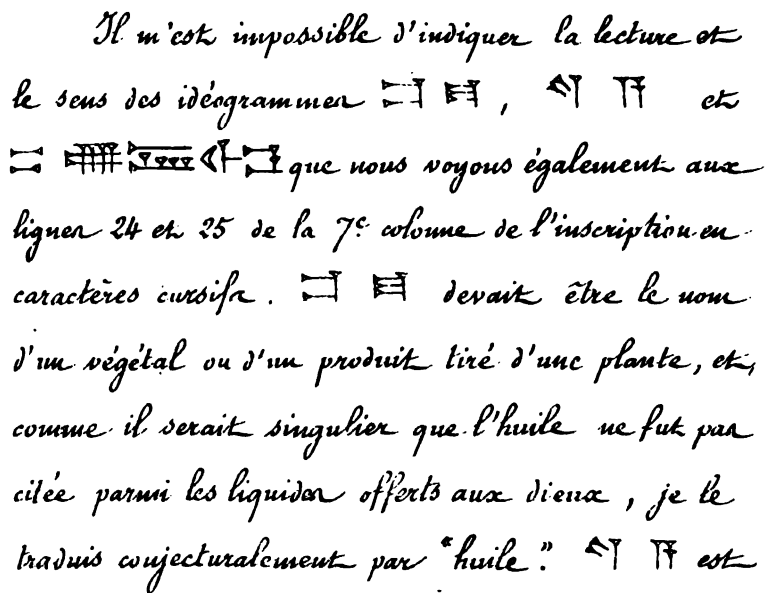 Il m'est impossible d'indiquer la lecture et
le sens des idéogrammes , et
que nous voyons également aux
lignes 24 et 25 de la 7e colonne de l'inscription en
caractères cursifs. devait être le nom
d'un végétal ou d'un produit tiré d'une plante, et,
comme il serait singulier que l'huile ne fut pas
citée parmi les liquides offerts aux dieux, je le
traduis conjecturalement par "huile". est